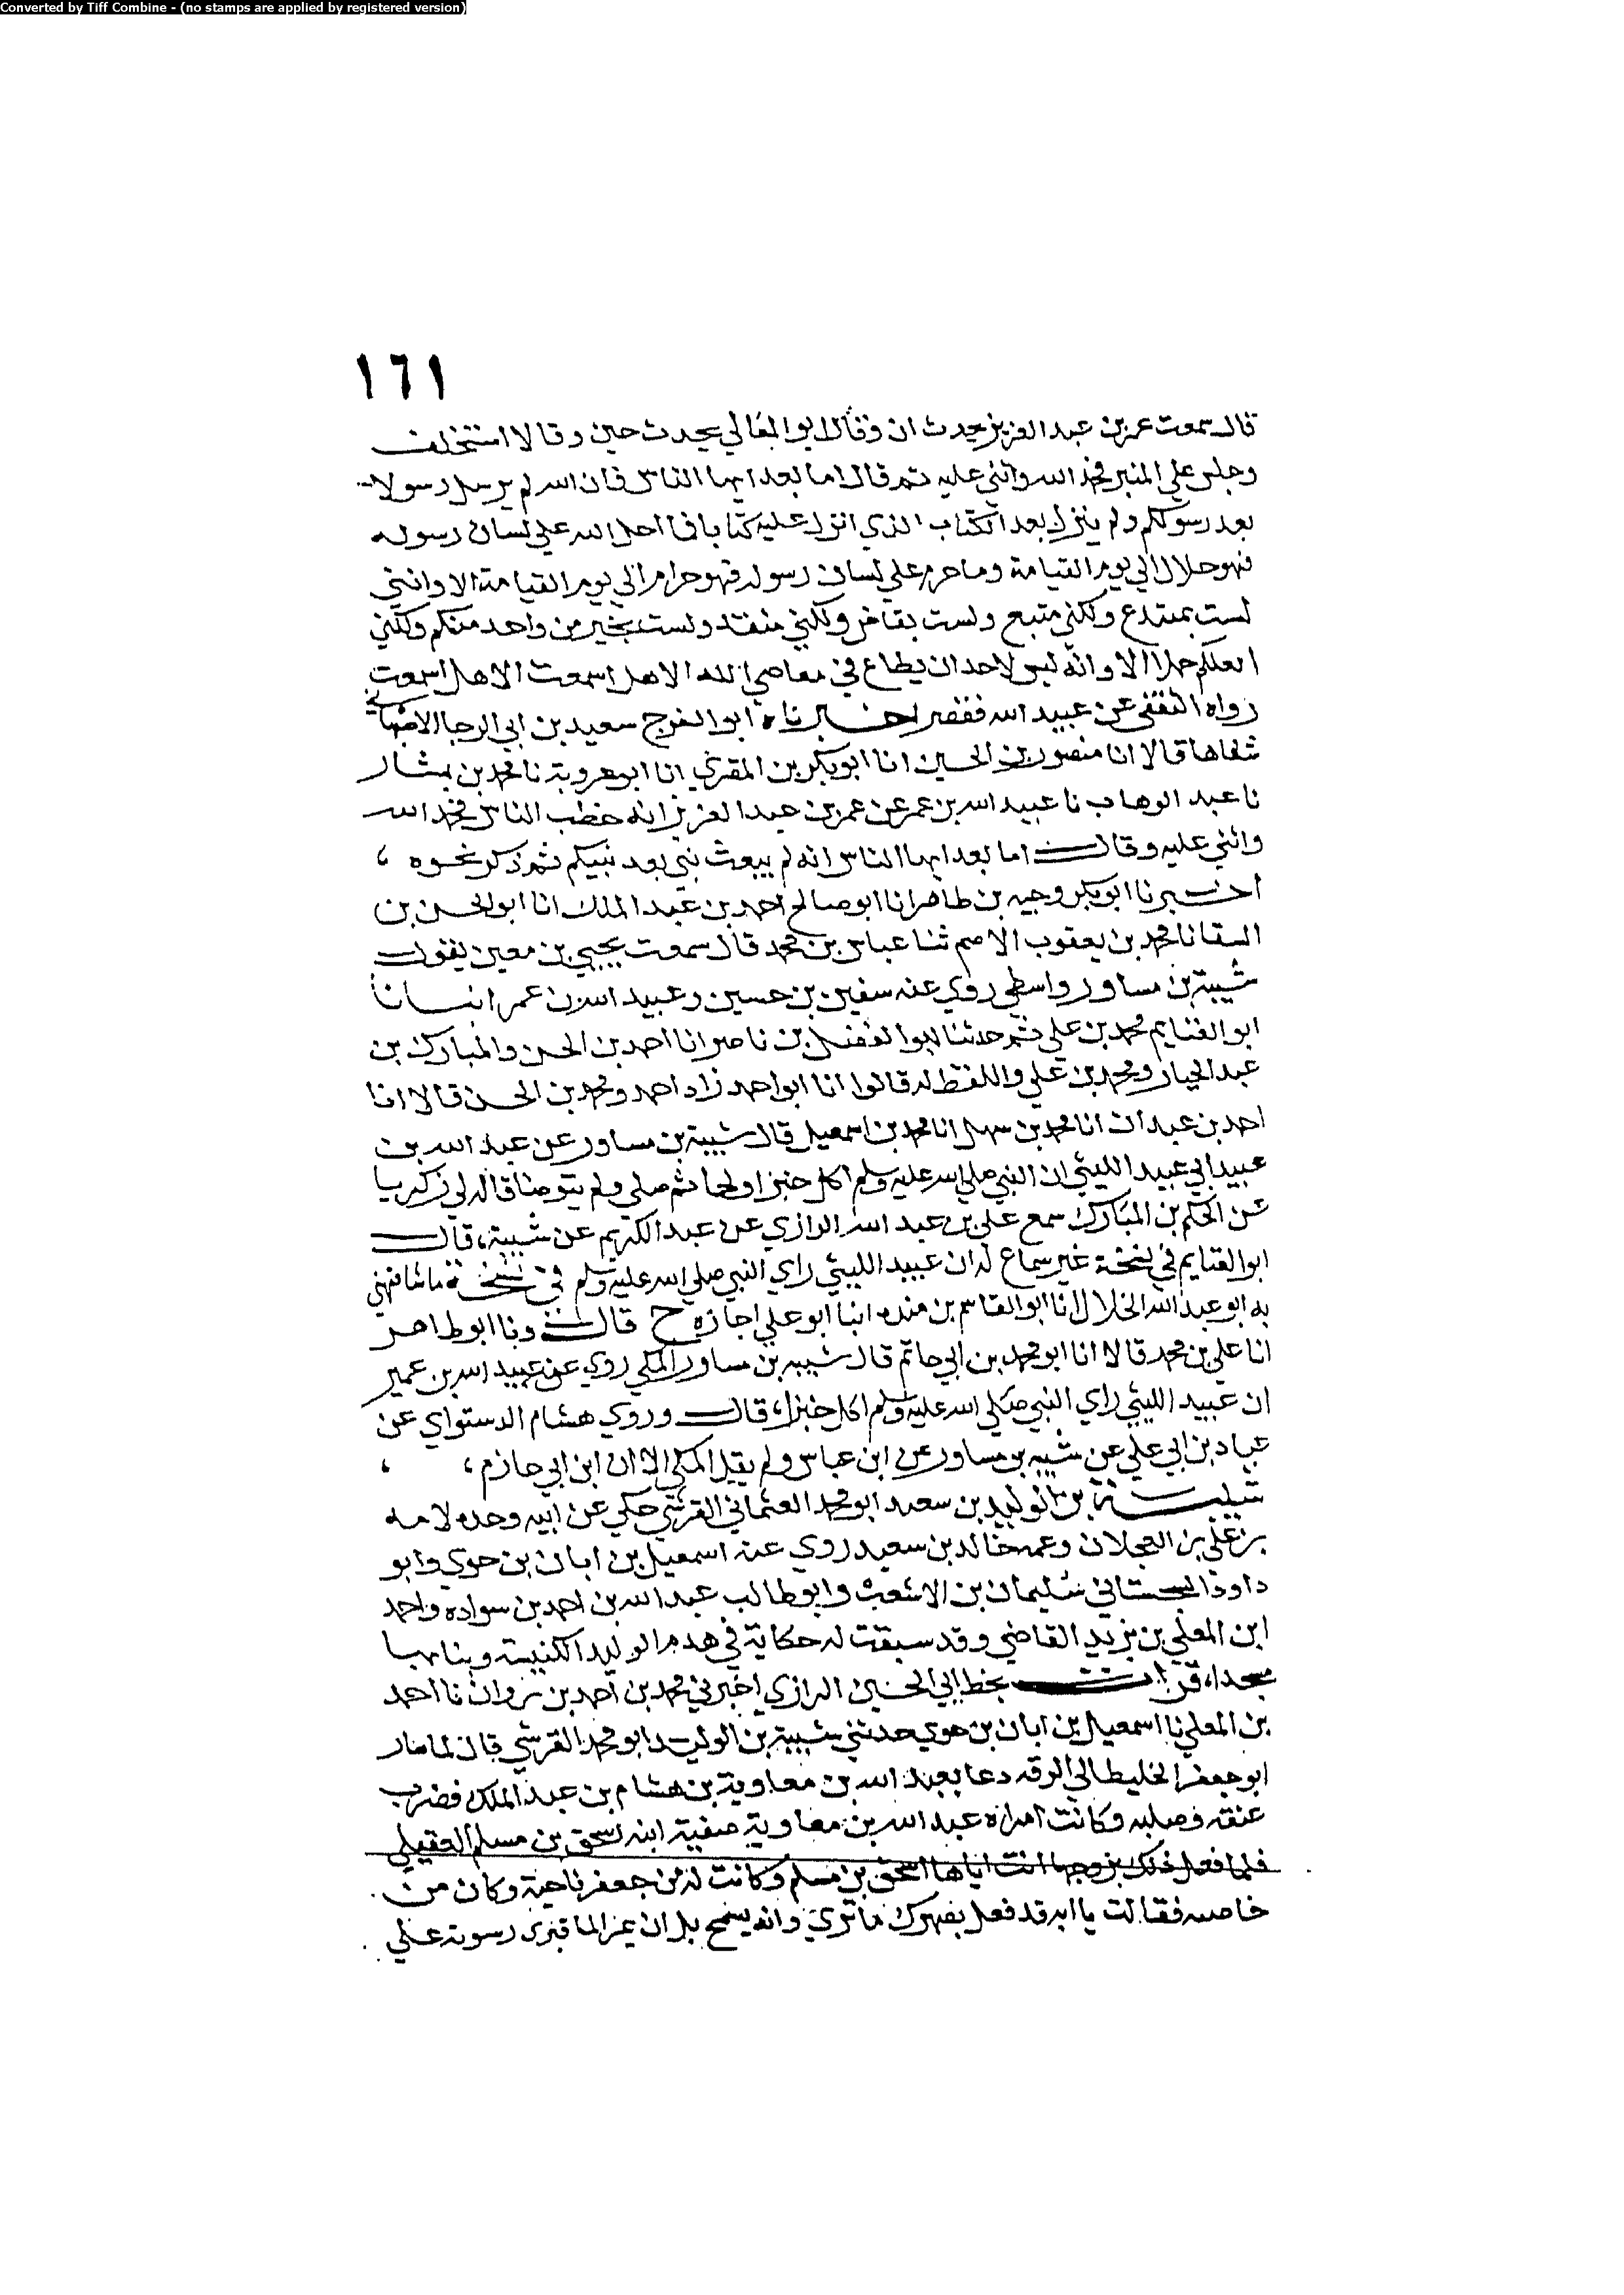 Converted by Tiff Combine - (no stamps are applied by registered version)
١٦١
قال سمعت عمر بن عبد العزيز يحدث ان وقال ابو المعالي يحدث حين وقالا استخلف
وجلس علي المنبر فحمد الله واثني عليه ثم قال اما بعد ايها الناس فان الله لم يرسل رسولا
بعد رسولكم ولم ينزل بعد الكتاب الذي انزل عليه كتابا فما احل الله علي لسان رسوله
فهو حلال الي يوم القيامة وما حرم علي لسان رسوله فهو حرام الي يوم القيامة الا وانني
لست بمبتدع ولكني متبع ولست بقاض ولكني منفذ ولست بخير من واحد منكم ولكني
اثقلكم حملا الا وانه ليس لاحد ان يطاع في معاصي الله الا هل اسمعت الا هل اسمعت
رواه الثقفي عن عبيد الله فقصر اخبرناه ابو الفرج سعيد بن ابي الرجا الاصبهاني
شفاها قالا انا منصور بن الحسين انا ابو بكر بن المقري انا ابو عروبة نا محمد بن بشار
نا عبد الوهاب نا عبيد الله بن عمر عن عمر بن عبد العزيز انه خطب الناس فحمد الله
واثني عليه وقال اما بعد ايها الناس انه لم يبعث نبي بعد نبيكم ثم ذكر نحوه ،
اخبرنا ابو بكر وجيه بن طاهر انا ابو صالح احمد بن عبد الملك انا ابو الحسن بن
السقا نا محمد بن يعقوب الاصم ثنا عباس بن محمد قال سمعت يحيي بن معين يقول
شيبة بن مساور واسطي روي عنه سفين بن حسين وعبيد الله بن عمر انبانا
ابو الغنايم محمد بن علي ثم حدثنا ابو الفضل بن ناصر انا احمد بن الحسن والمبارك بن
عبد الجبار ومحمد بن علي واللفظ له قالوا انا ابو احمد زاد احمد ومحمد بن الحسن قالا انا
احمد بن عبدان انا محمد بن سهل انا محمد بن اسمعيل قال شيبة بن مساور عن عبد الله بن
عبيد ابي عبيد الليثي ان النبي صلي الله عليه وسلم اكل خبزا ولحما ثم صلي ولم يتوضا قال لي زكريا
عن الحكم بن المبارك سمع علي بن عبد الله الرازي عن عبد الكريم عن شيبة، قال
ابو الغنايم في نسخة غير سماع لد ان عبيد الليثي راي النبي صلي الله عليه وسلم في نسخة ما شافهني
به ابو عبد الله الخلال انا ابو القاسم بن منده انبا ابو علي اجازه ح قال ونا ابو طاهر
انا علي بن محمد قالا انا ابو محمد بن ابي حاتم قال شيبه بن مساور المكي روي عن عبيد الله بن عمير
ان عبيد الليثي راي النبي صلي الله عليه وسلم اكل خبزا، قال وروي هشام الدستواي عن
عباد بن ابي علي عن شيبه بن مساور عن ابن عباس ولم يقل المكي الا ان ابن ابي حازم، ،
شيبة بن الوليد بن سعيد ابو محمد العثماني القرشي حكي عن ابيه وجده لامه
بن علي بن العجلان وعمه خالد بن سعيد روي عنه اسمعيل بن ابان بن حوي وابو
داود السجستاني سليمان بن الاشعث وابو طالب عبد الله بن احمد بن سواده واحمد
ابن المعلي بن يزيد القاضي وقد سبقت له حكاية في هدم الوليد الكنيسة وبنايها
مسجدا، قرات بخط ابي الحسين الرازي اخبرني محمد بن احمد بن مروان نا احمد
بن المعلي نا اسمعيل بن ابان بن حوي حدثني شيبة بن الوليد ابو محمد القرشي قال لما صار
ابو جعفر الخليط الي الرقه دعا بعبد الله بن معاوية بن هشام بن عبد الملك فضرب
عنقه وصلبه وكانت امراه عبد الله بن معاوية صفية ابنه اسحق بن مسلم العقيلي
فلما فعل ذلك بزوجها اتت اباها اسحق بن مسلم وكانت له من جعفر ناحية وكان من
خاصه فقالت يا ابه قد فعل بصهرك ما تري وانه يسمح بل ان